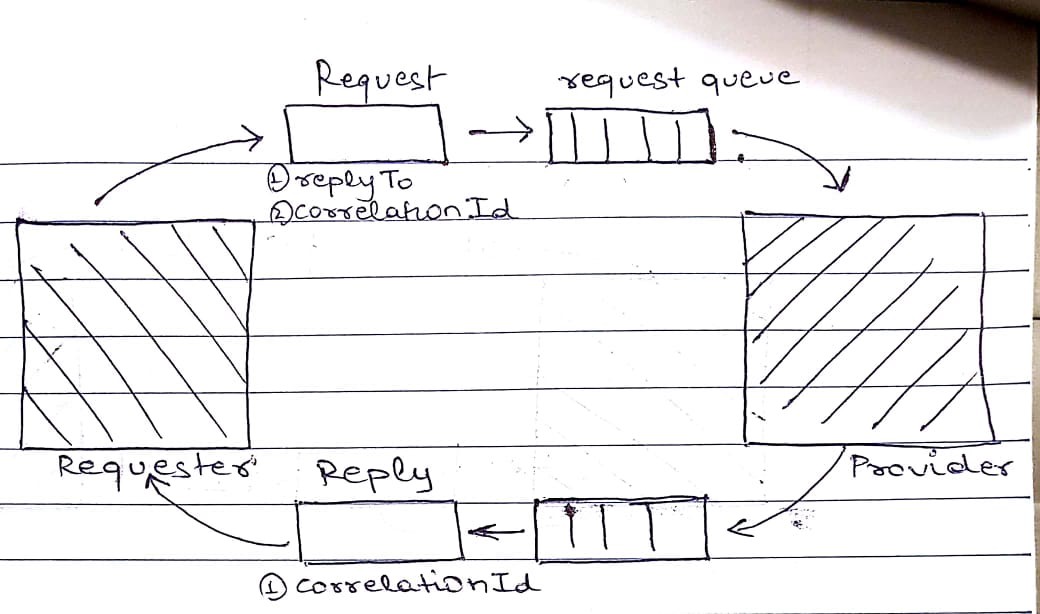 Request
request queue
① replyTo
② correlationId
Requester
Reply
Provider
① correlationId